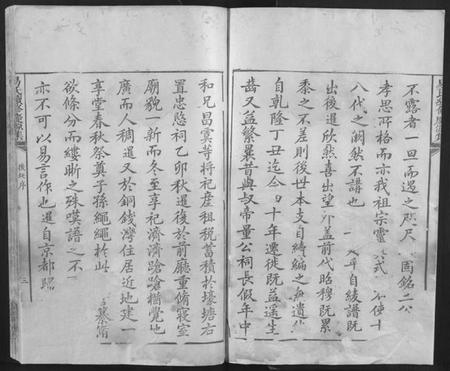 不露者一旦而遇之咫尺
孝思所格而亦我祖宗靈
八代之闕然不譜也
出後選欣然喜出望外蓋前代昭穆既累
黍之不差則後世本支自續編之無遺
自乾隆丁丑迄今
十年遷徙既益遙生
齒又益繁曩昔與叔帝量公祠長假年中
和兄昌雲等將祀產租稅蓄積於壕塘右
置忠愍祠乙卯秋選後於前廳重脩寢室
廟貌一新而冬至享祀濟濟蹌蹌猶覺地
廣而人稠選又於銅錢灣住居近地建一
享堂春秋祭奠子孫繩繩於此
欲條分而縷晰之殊嘆譜之不
亦不可以易言作也選自京都歸
後敘序
三